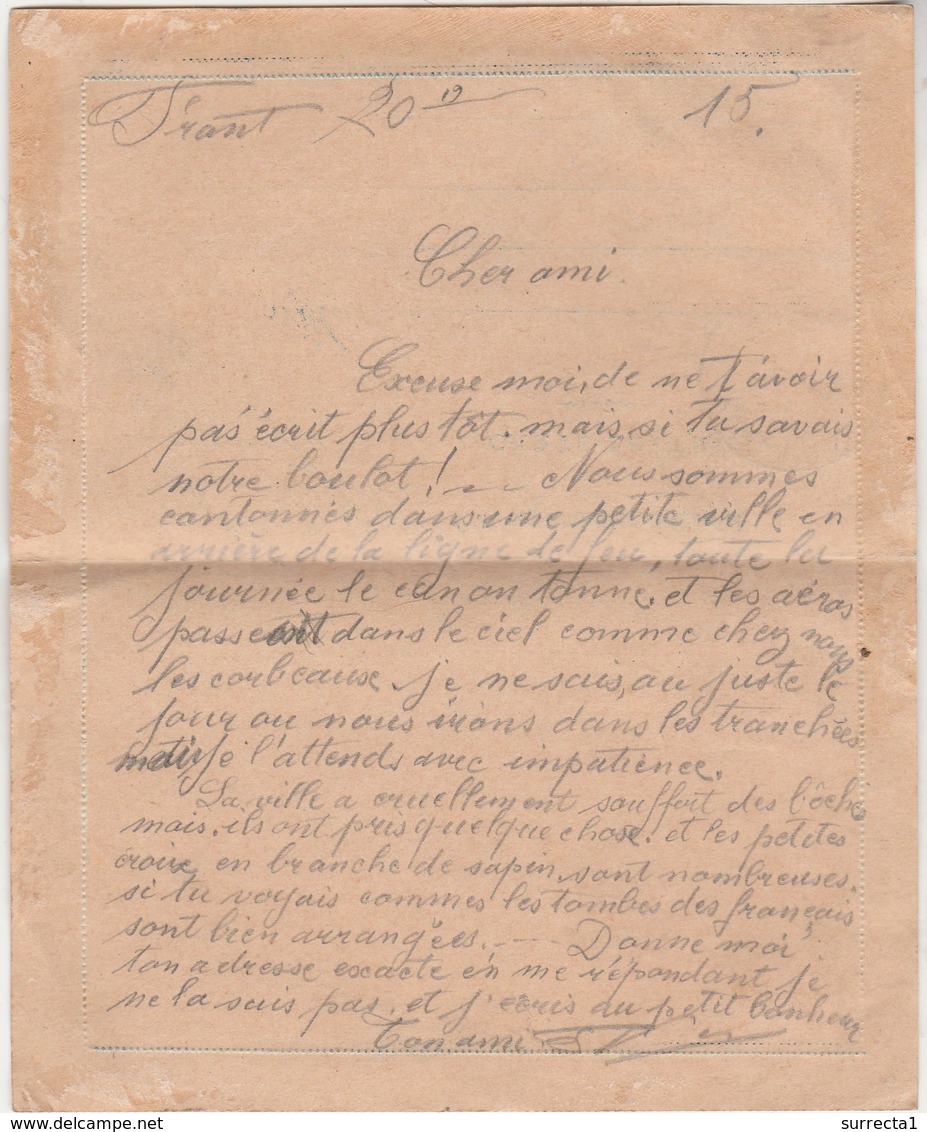 Front 20 19 15.
Cher ami.
Excuse moi, de ne t'avoir
pas écrit plus tôt. mais si tu savais
notre boulot! — Nous sommes
cantonnés dans une petite ville en
arrière de la ligne de feu, toute la
journée le canon tonne. et les aéros
passent dans le ciel comme chez nous
les corbeaux. je ne sais, au juste le
jour ou nous irons dans les tranchées
mais je l'attends avec impatience.
La ville a cruellement souffert des bôches
mais, ils ont pris quelque chose. et les petites
croix en branche de sapin, sont nombreuses.
si tu voyais commes les tombes des français
sont bien arrangées. — Donne moi
ton adresse exacte en me répondant je
ne la sais pas. et j'écris au petit bonheur
Ton ami
surrecta1